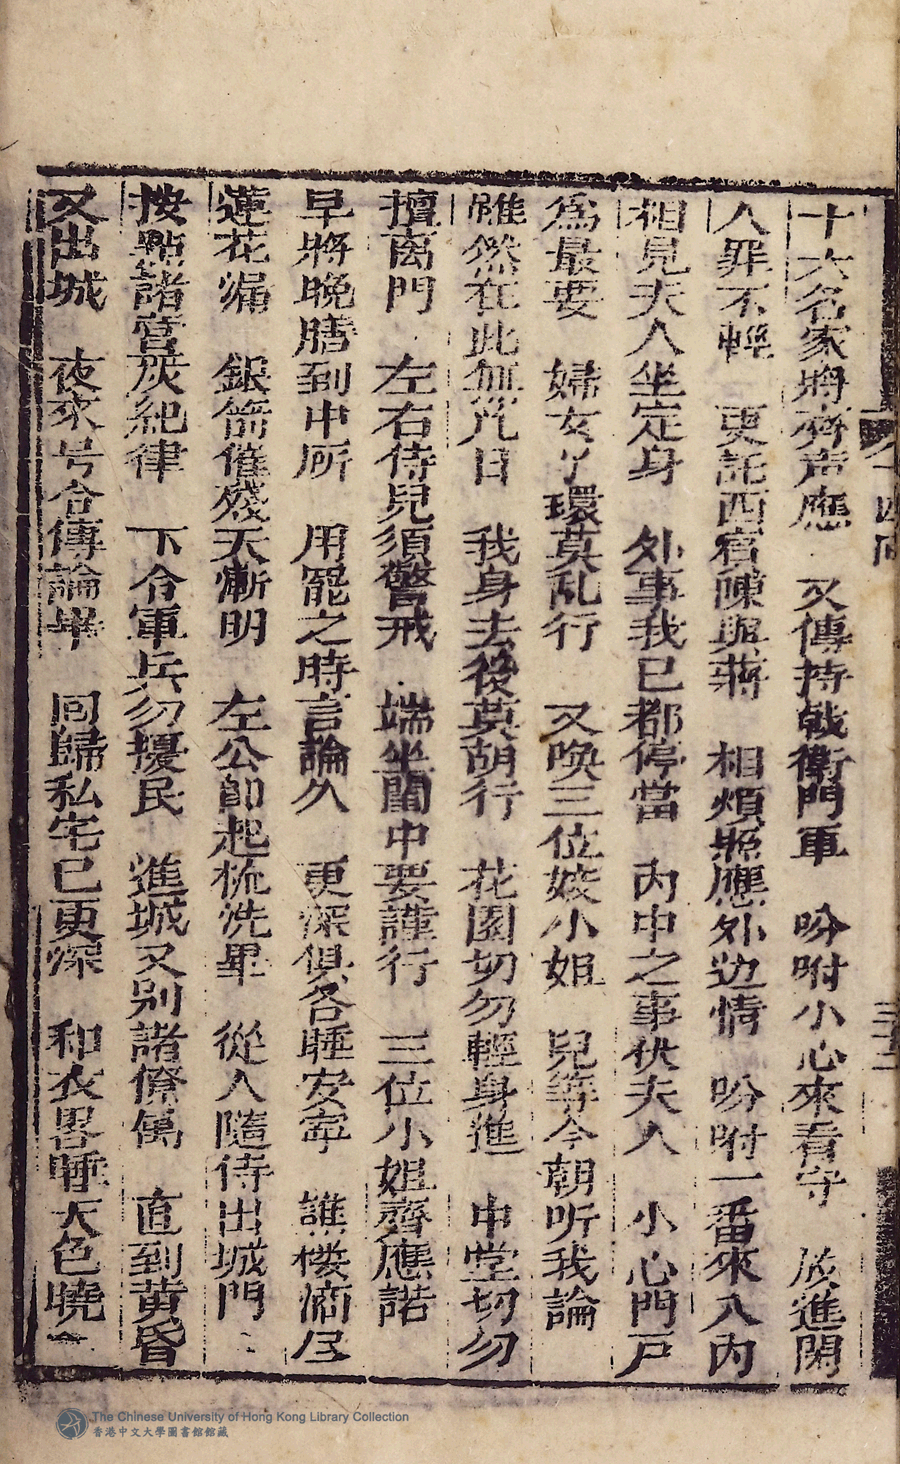 十六名家將齊声應　又傳持戟衛門軍　吩咐小心來看守　放進閑
人罪不輕　更託西賓陳與蔣　相煩照應外边情　吩咐一番來入內
相見夫人坐定身　外事我已都停當　內中之事伏夫人　小心門戶
為最要　婦女丫環莫乱行　又喚三位姣小姐　兒等今朝听我論
雖然在此無光日　我身去後莫胡行　花園切勿輕身進　中堂切勿
擅离門　左右侍兒須警戒　端坐閨中要謹行　三位小姐齊應諾
早將晚膳到中所　用罷之時言論久　更深俱各睡安寧　譙楼滴尽
蓮花漏　銀箭催殘天漸明　左公即起梳洗畢　從人隨侍出城門
按點諸営灰紀律　下令軍兵勿擾民　進城又別諸僚属　直到黃昏
又出城　夜來号令傳論畢　回歸私宅已更深　和衣畧睡天色曉
十四回
三十二
The Chinese University of Hong Kong Library Collection
香港中文大學圖書館館藏